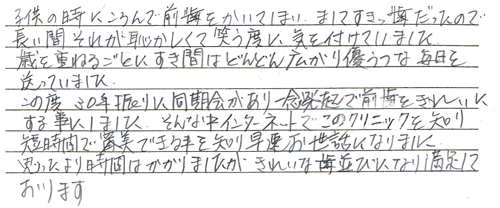 子供の時にころんで前歯をかいてしまい ましてすきっ歯だったので
長い間それが恥かしくて笑う度に気を付けていました
歳を重ねるごとにすき間はどんどん広がり優うつな毎日を
送っていました
この度30年振りに同期会があり一念発起で前歯をきれいに
する事にしました そんな中インターネットでこのクリニックを知り
短時間で審美できる事を知り早速お世話になりました
思ったより時間はかかりましたがきれいな歯並びになり満足して
おります